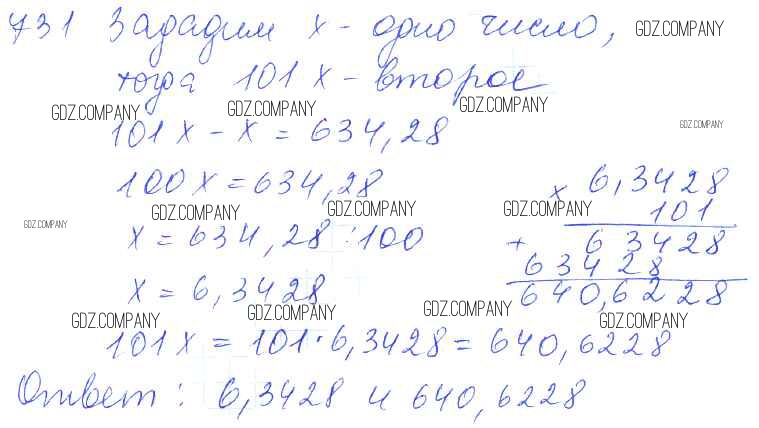 731 Зададим x - одно число, GDZ.COMPANY
тогда 101x - второе
GDZ.COMPANY GDZ.COMPANY GDZ.COMPANY
101x - x = 634,28 GDZ.COMPANY
100x = 634,28
× 6,3428
101
GDZ.COMPANY GDZ.COMPANY GDZ.COMPANY GDZ.COMPANY
x = 634,28 : 100
+ 63428
63428
x = 6,3428
640,6228
GDZ.COMPANY GDZ.COMPANY GDZ.COMPANY GDZ.COMPANY
101x = 101 · 6,3428 = 640,6228
Ответ: 6,3428 и 640,6228